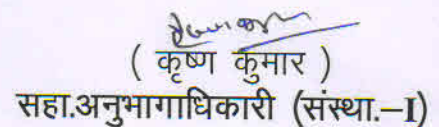 ( कृष्ण कुमार )
सहा.अनुभागाधिकारी (संस्था.–I)